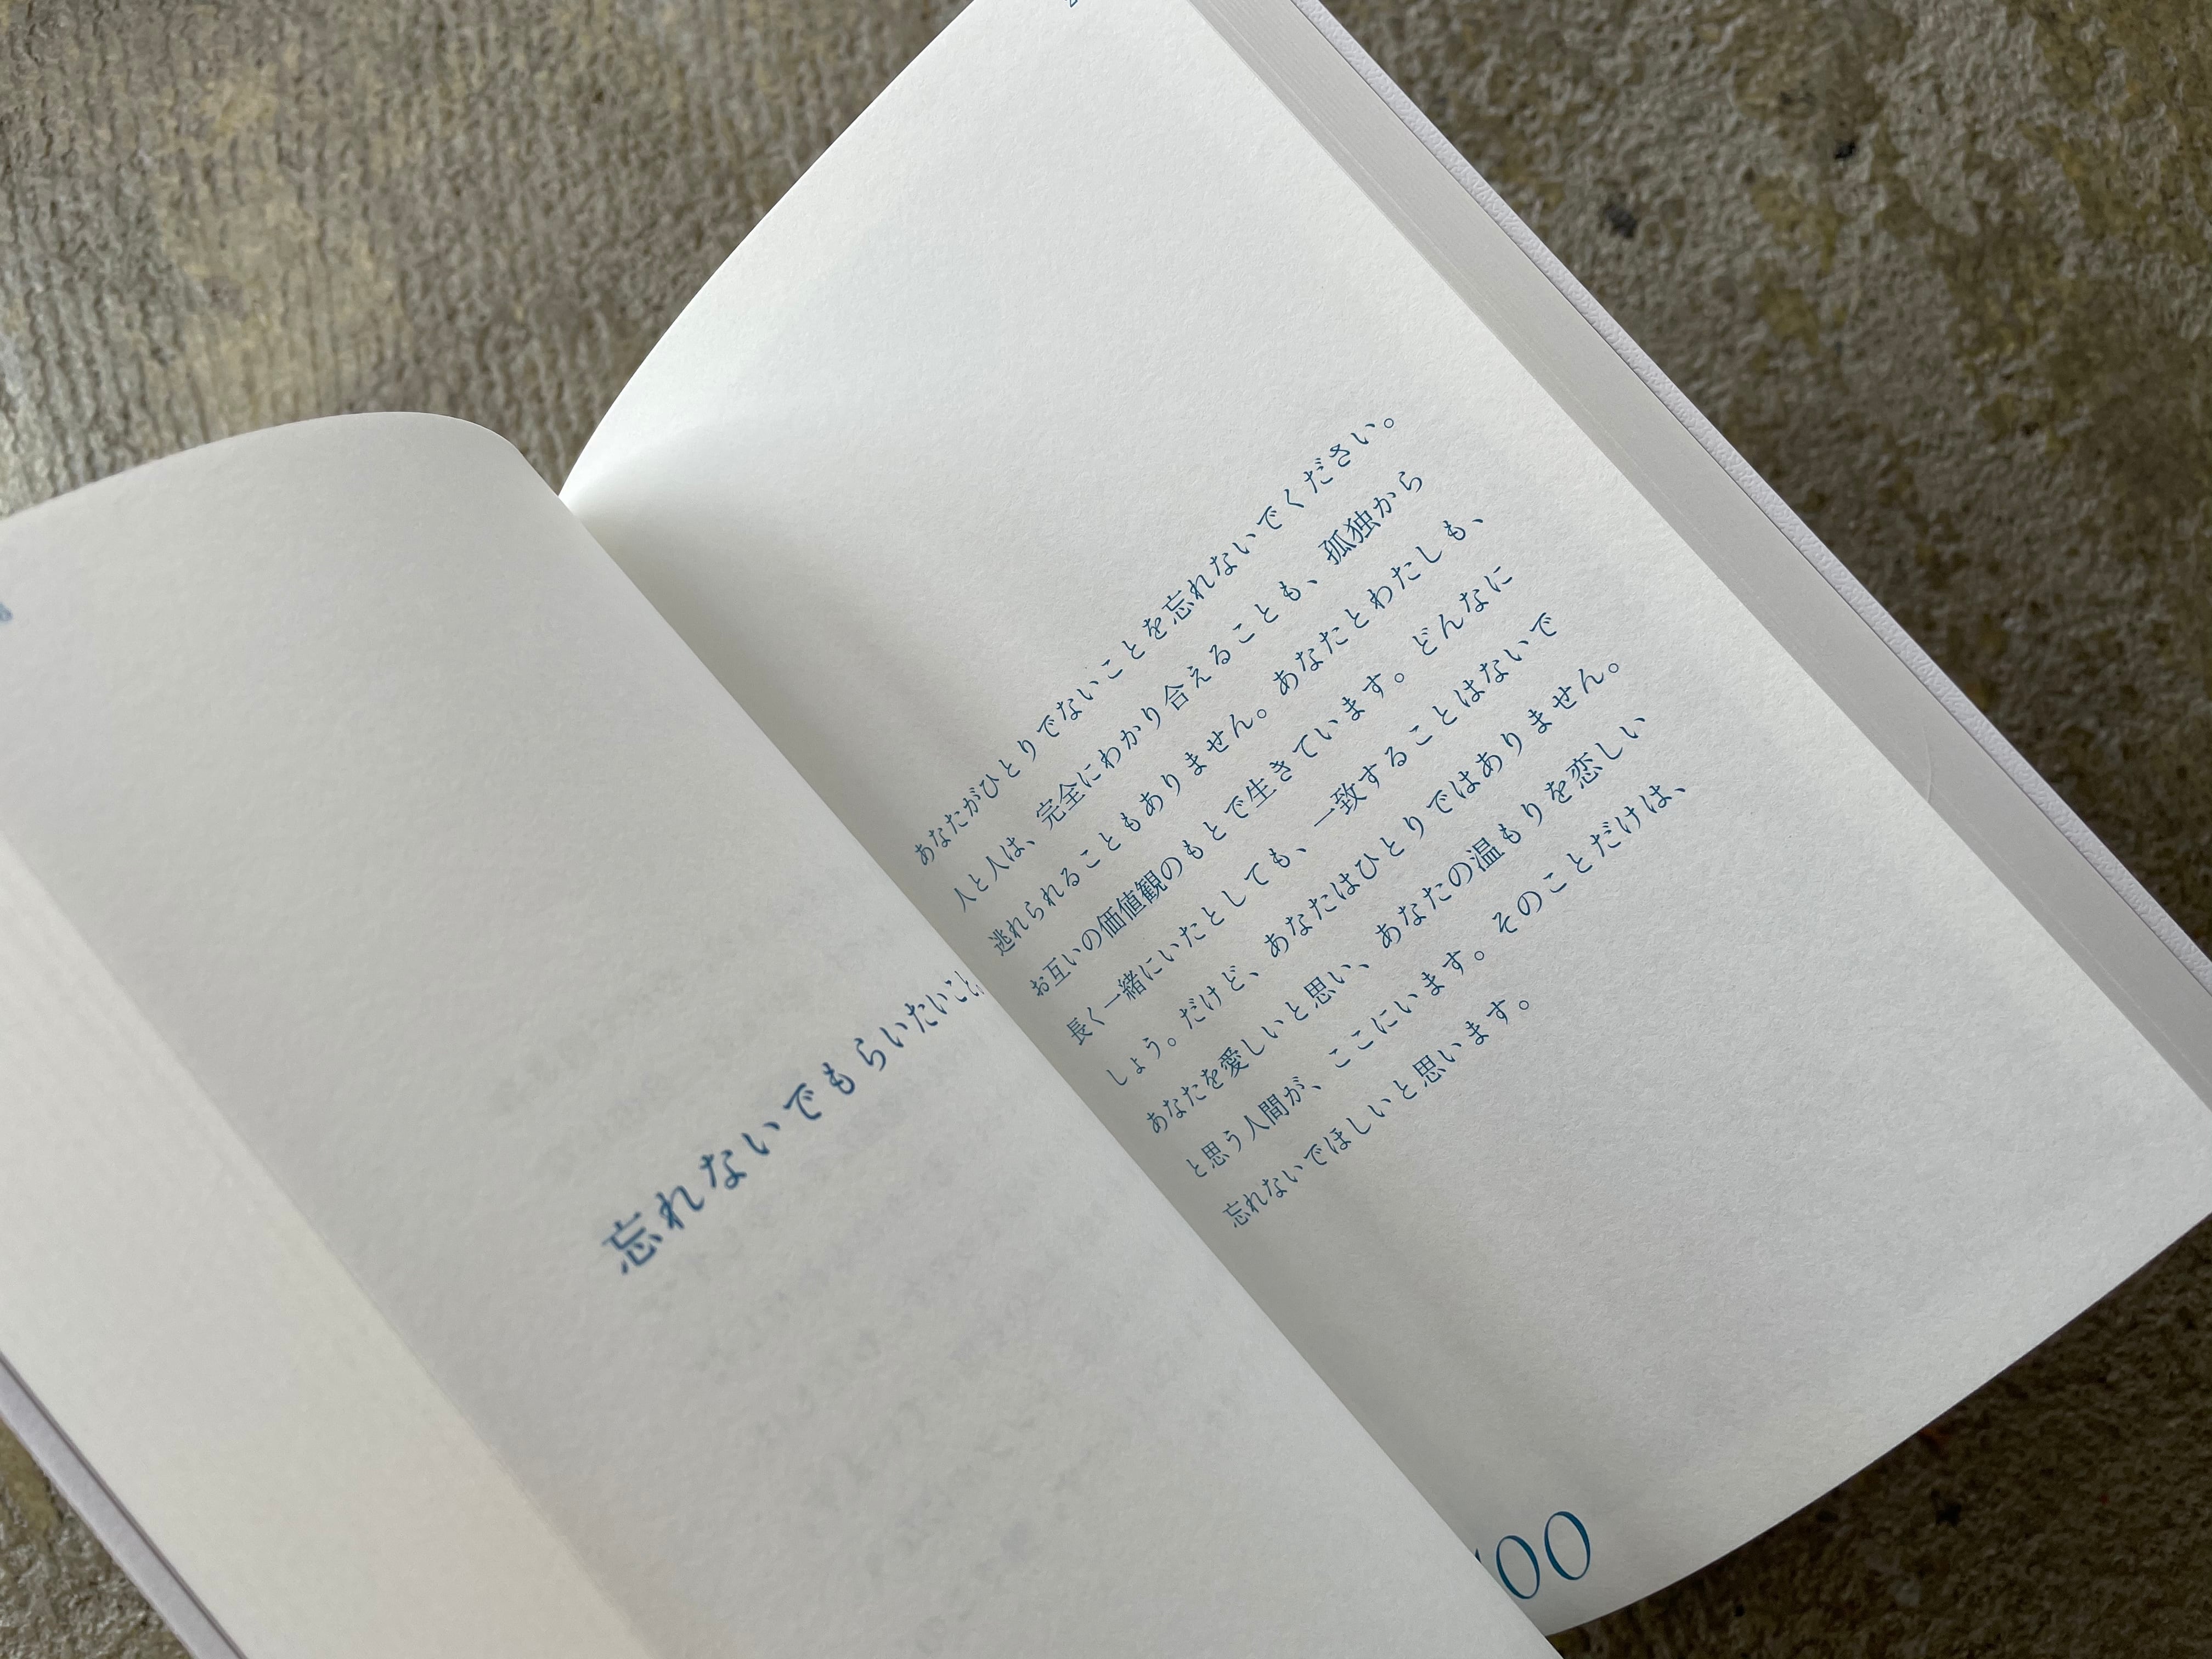 忘れないでもらいたいこと
あなたがひとりでないことを忘れないでください。
人と人は、完全にわかり合えることも、孤独から
逃れられることもありません。あなたとわたしも、
お互いの価値観のもとで生きています。どんなに
長く一緒にいたとしても、一致することはないで
しょう。だけど、あなたはひとりではありません。
あなたを愛しいと思い、あなたの温もりを恋しい
と思う人間が、ここにいます。そのことだけは、
忘れないでほしいと思います。
00